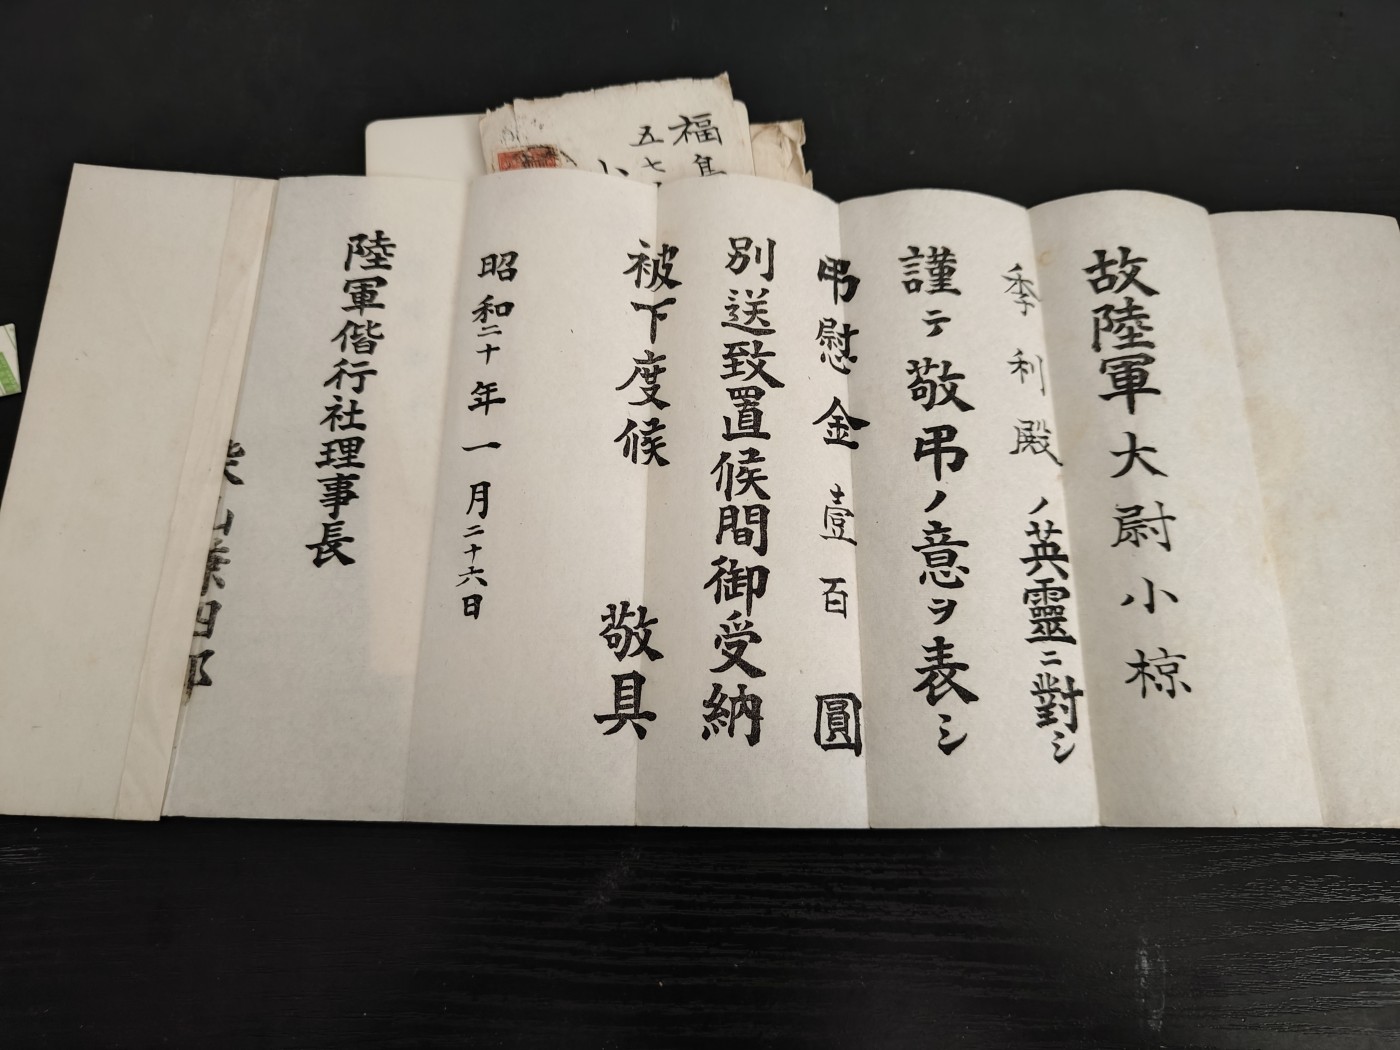 故陸軍大尉小椋
季利殿ノ英靈ニ對シ
謹テ敬弔ノ意ヲ表シ
弔慰金壹百圓
別送致置候間御受納
被下度候 敬具
昭和二十年一月二十六日
陸軍偕行社理事長
四郎
福島
五七
小